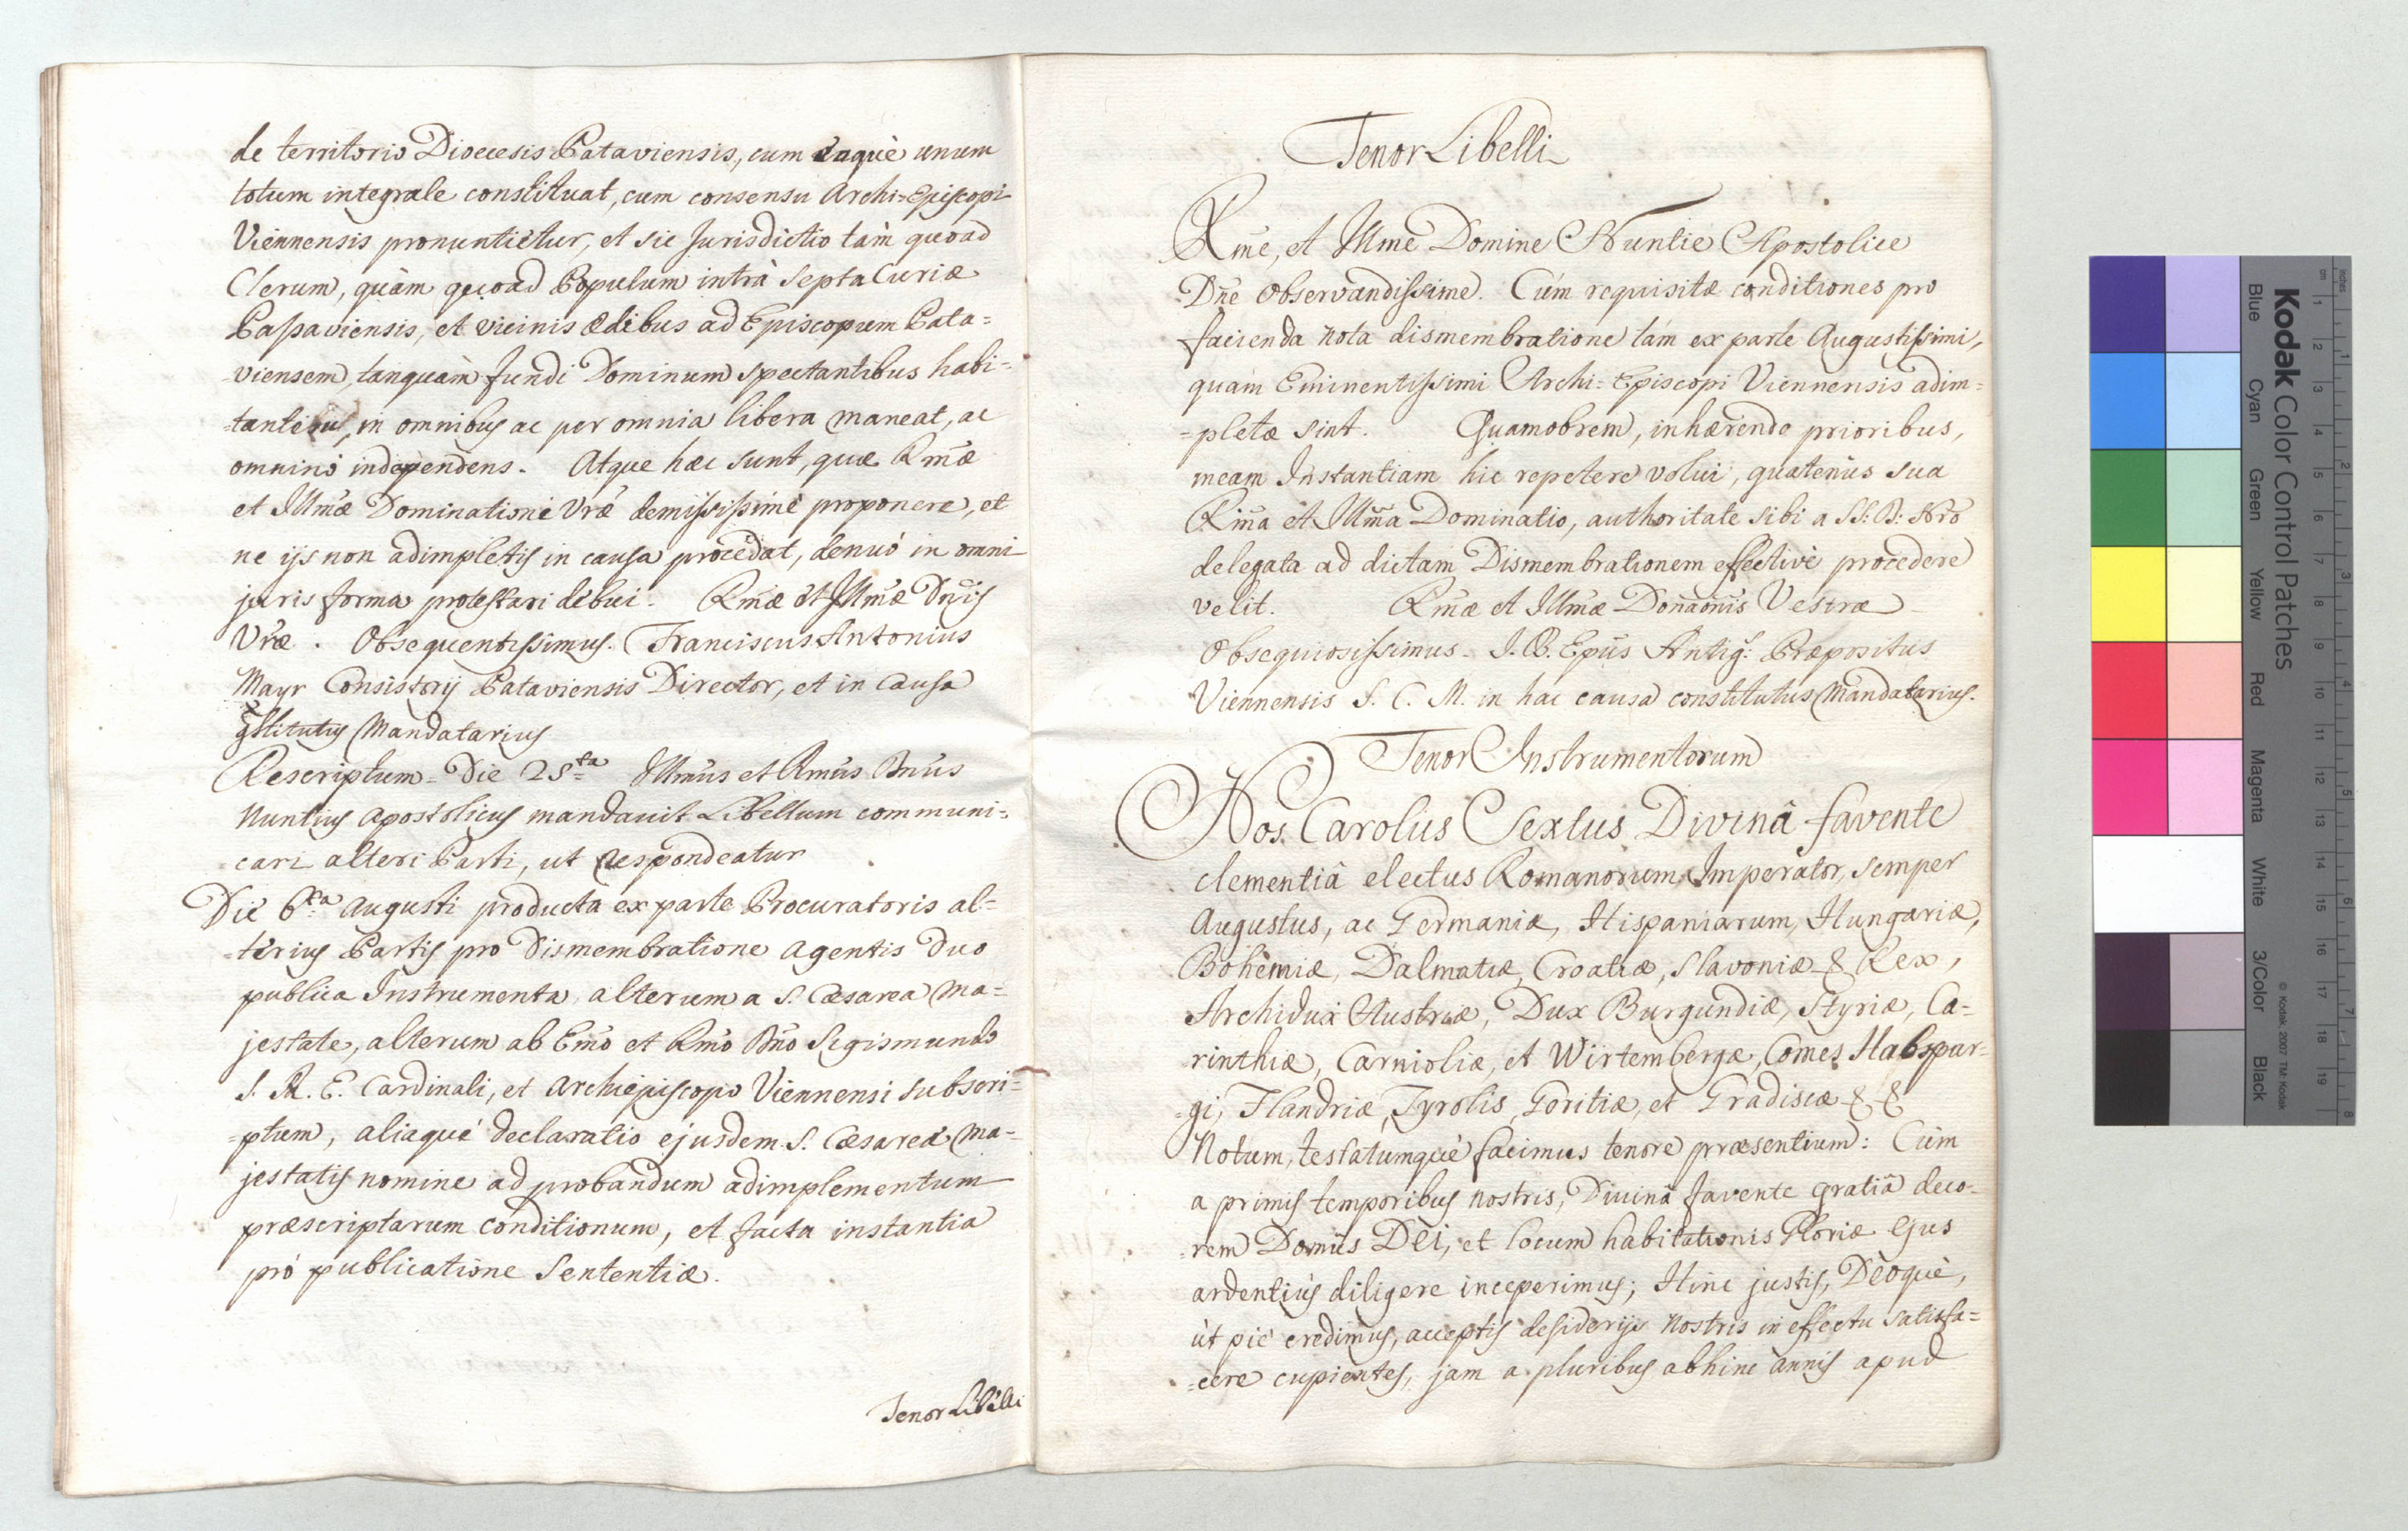 de territorio Diœcesis Pataviensis, cum eaquè unum
totum integrale constituat, cum consensu Archi=Episcopi
Viennensis pronuntiétur, et sic Jurisdictio tàm quoad
Clerum, quàm quoad Populum intrà septa Curiæ
Passaviensis, et vicinis ædibus ad Episcopum Pata=
=viensem, tanquàm fundi Dominum spectantibus habi=
=tantibus, in omnibus ac per omnia libera maneat, ac
omninò independens. Atque hæc sunt, quæ Rm̃æ
et Illm̃æ Dominationi Vrẽ demississimè proponere, et
ne ijs non adimpletis in causa procedat, denuò in omni
juris forma protestari debui. Rm̃æ et Illm̃æ Dñis
Vræ. Obsequentissimus. Franciscus Antonius
Mayr Consistorij Pataviensis Director, et in causa
constitutus Mandatarius
Rescriptum = Die 28ta Illm̃us et Rm̃us Dnũs
Nuntius Apostolicus mandavit Libellum communi=
=cari alteri Parti, ut respondeatur
Die 6ta Augusti producta ex parte Procuratoris al=
=terius Partis pro Dismembratione agentis duo
publica Instrumenta, alterum a S. Cæsarea Ma=
jestate, alterum ab Em̃o et Rm̃o Dño Sigismundo
S. R. E. Cardinali, et Archiepiscopo Viennensi subscri=
=ptum, aliaquè declaratio ejusdem S. Cæsareæ Ma=
jestatis nomine ad probandum adimplementum
præscriptarum conditionum, et facta instantia
prò publicatione Sententiæ.
Tenor Libelli
Tenor Libelli
Rm̃e, et Illm̃e Domine Nuntie Apostolice
Dñe Observandissime. Cùm requisitæ conditiones pro
facienda nota dismembratione tàm ex parte Augustissimi,
quàm Eminentissimi Archi=Episcopi Viennensis adim=
=pletæ sint. Quamobrem, inhærendo prioribus,
meam Instantiam hic repetere volui, quatenùs sua
Rm̃a et Illm̃a Dominatio, authoritate sibi a SS: D: Nro
delegata ad dictam Dismembrationem effectivè procedere
velit. Rm̃æ et Illm̃æ Dom̃aõnis Vestræ
Obsequiosissimus. J. B. Epũs Antig: Præpositus
Viennensis S. C. M. in hac causa constitutus Mandatarius.
Tenor Instrumentorum
Nos Carolus Sextus Divinâ favente
clementiâ electus Romanorum Imperator, semper
Augustus, ac Germaniæ, Hispaniarum, Hungariæ,
Bohèmiæ, Dalmatiæ, Croatiæ, Slavoniæ & Rex,
Archidux Austriæ, Dux Burgundiæ, Styriæ, Ca=
rinthiæ, Carnioliæ, et Wirtembergæ, Comes Habspur=
=gi, Flandriæ, Tyrolis, Goritiæ, et Gradiscæ & &
Notum, testatumquè facimus tenore præsentium: Cùm
a primis temporibus nostris, Divinâ favente gratiâ deco=
=rem Domùs Dei, et locum habitationis Gloriæ ejus
ardentiùs diligere inceperimus; Hinc justis, Dèoquè,
ùt piè credimus, acceptis desiderijs nostris in effectu satisfa=
=cere cupientes, jam a pluribus abhinc annis apud
Kodak Color Control Patches
Blue Cyan Green Yellow Red Magenta White 3/Color Black
© Kodak, 2007 TM: Kodak
cm 1 2 3 4 5 6 7 8 9 10 11 12 13 14 15 16 17 18 19
inches 1 2 3 4 5 6 7 8